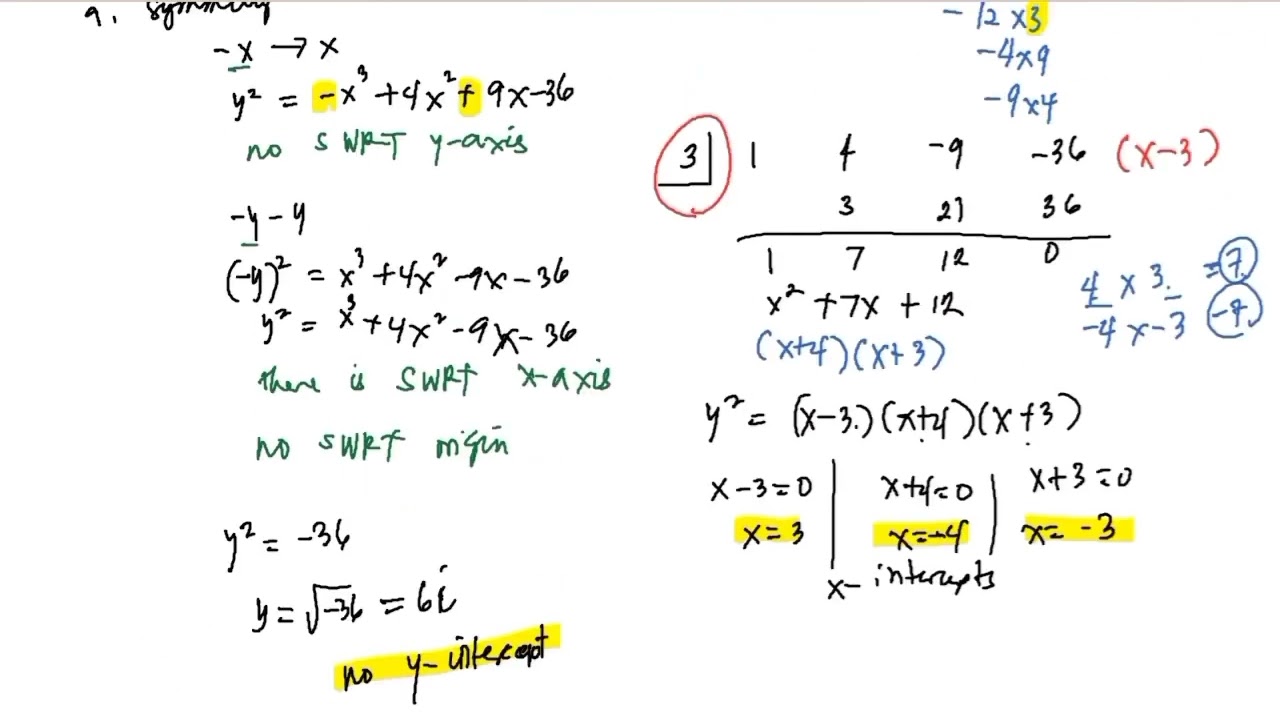 9. symmetry
-x → x
y² = -x³ +4x² + 9x-36
no SWRT y-axis
-y - y
(-y)² = x³ +4x² -9x - 36
y² = x³ +4x² -9x - 36
there is SWRT x-axis
no SWRT origin
y² = -36
y = √-36 = 6i
no y-intercept
- 12 x 3
-4x9
-9x4
3 1 4 -9 -36 (x-3)
3 21 36
1 7 12 0
x² +7x + 12
(x+4)(x+3)
4 x 3 = 7
-4 x -3 -7
y² = (x-3)(x+4)(x+3)
x-3=0 x+4=0 x+3=0
x=3 x=-4 x= -3
x- intercepts